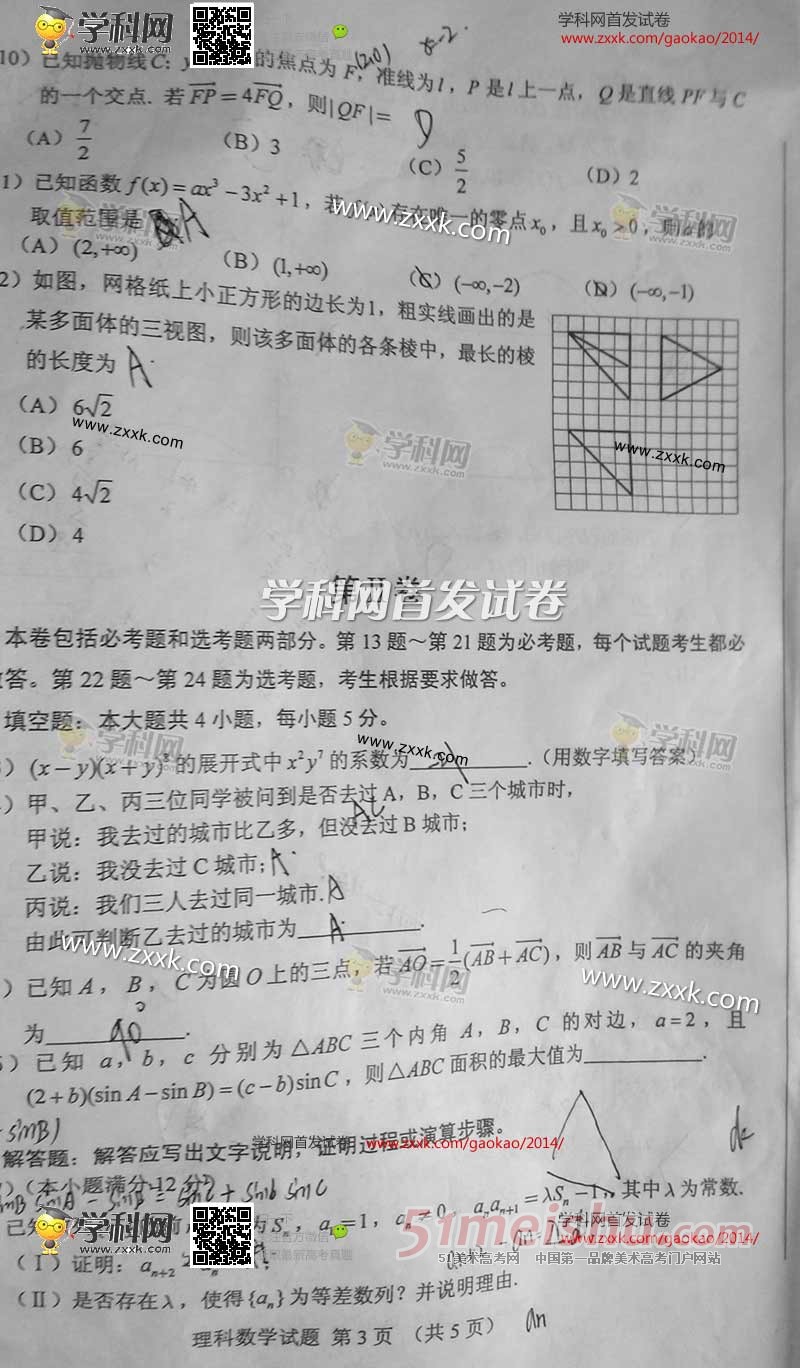 学科网 www.zxxk.com
学科网首发试卷
www.zxxk.com/gaokao/2014/
(2,0)
x=-2.
10）已知抛物线C：y 的焦点为 F，准线为 l，P 是 l 上一点，Q 是直线 PF 与 C
的一个交点. 若 FP = 4FQ，则|QF|=
（A） 7/2 （B）3 （C） 5/2 （D）2
1）已知函数 f(x) = ax³ − 3x² + 1，若 存在唯一的零点 x₀，且 x₀ > 0，则 a 的
取值范围是 A
（A）(2,+∞) （B）(1,+∞) （C）(−∞,−2) （D）(−∞,−1)
2）如图，网格纸上小正方形的边长为1，粗实线画出的是
某多面体的三视图，则该多面体的各条棱中，最长的棱
的长度为 A.
（A）6√2
www.zxxk.com
（B）6
（C）4√2
（D）4
学科网 www.zxxk.com
www.zxxk.com
第II卷
学科网首发试卷
本卷包括必考题和选考题两部分。第 13 题～第 21 题为必考题，每个试题考生都必
答。第 22 题～第 24 题为选考题，考生根据要求做答。
填空题：本大题共 4 小题，每小题 5 分。
www.zxxk.com
）(x − y)(x + y)⁸ 的展开式中 x²y⁷ 的系数为 .（用数字填写答案）
）甲、乙、丙三位同学被问到是否去过 A，B，C 三个城市时，
AC
甲说：我去过的城市比乙多，但没去过 B 城市；
乙说：我没去过 C 城市； A.
丙说：我们三人去过同一城市. A
由此可判断乙去过的城市为 A .
www.zxxk.com
）已知 A，B，C 为圆 O 上的三点，若 AO = 1/2(AB + AC)，则 AB 与 AC 的夹角
www.zxxk.com
为 90° .
）已知 a，b，c 分别为 △ABC 三个内角 A，B，C 的对边，a=2，且
(2+b)(sin A − sin B) = (c − b)sin C，则 △ABC 面积的最大值为 .
sinB)
学科网首发试卷 www.zxxk.com/gaokao/2014/
解答题：解答应写出文字说明，证明过程或演算步骤。
）（本小题满分 12 分）
已知 为 Sₙ，a₁=1，aₙ≠0，aₙaₙ₊₁ = λSₙ − 1，其中 λ 为常数.
（I）证明：aₙ₊₂
（II）是否存在 λ，使得{aₙ}为等差数列？并说明理由.
51meishu.com
51美术高考网 中国第一品牌美术高考门户网站
学科网首发试卷
www.zxxk.com/gaokao/2014/
理科数学试题 第 3 页 （共 5 页）
an